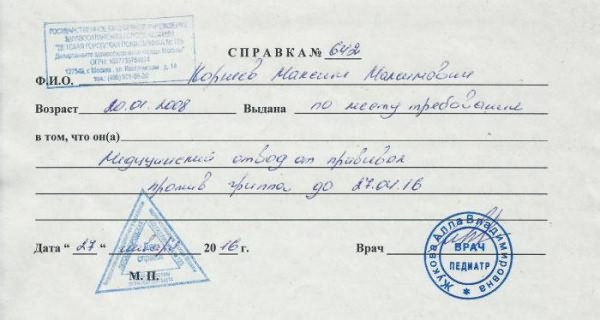 ГОСУДАРСТВЕННОЕ БЮДЖЕТНОЕ УЧРЕЖДЕНИЕ
ЗДРАВООХРАНЕНИЯ ГОРОДА МОСКВЫ
"ДЕТСКАЯ ГОРОДСКАЯ ПОЛИКЛИНИКА
Департамента здравоохранения города Москвы
ОГРН
г. Москва, ул.
тел.
СПРАВКА № 642
Ф.И.О. Корнеев Максим Максимович
Возраст 20.01.2008 Выдана по месту требования
в том, что он(а)
Медицинский отвод от прививок
против гриппа до 27.04.16
Дата " 27 " 20 16 г. Врач
М. П.
Для справок
Жукова Алла Владимировна
ВРАЧ
ПЕДИАТР